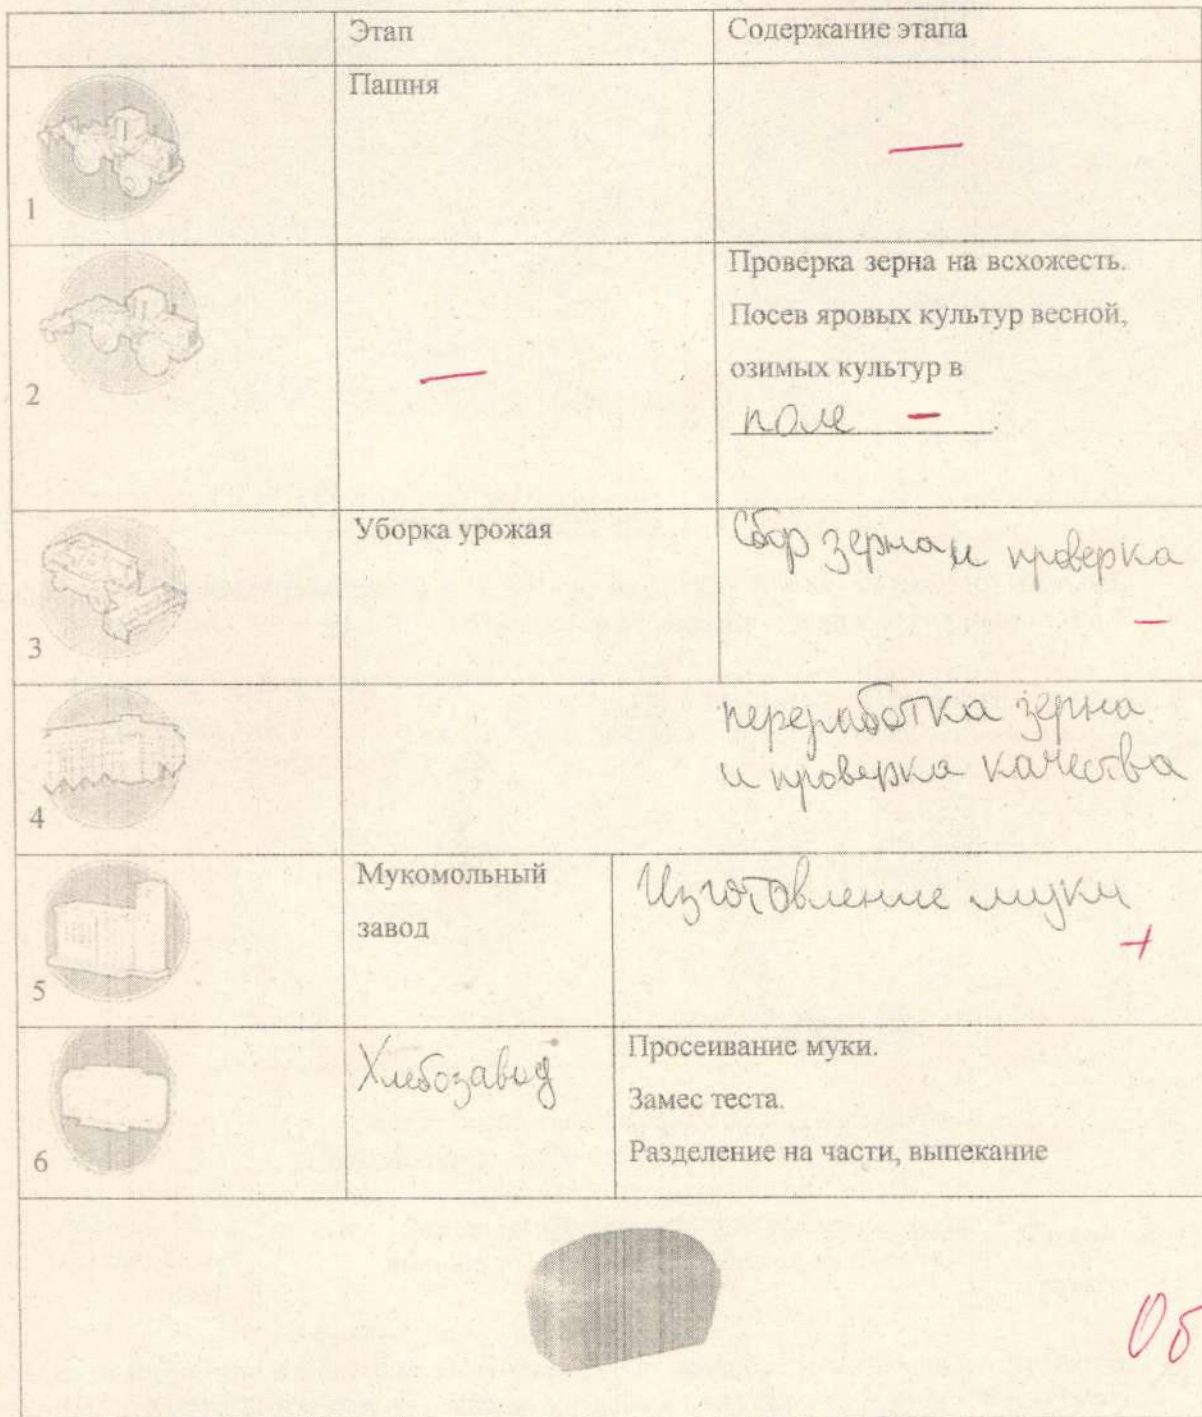 Этап
Содержание этапа
1
Пашня
—
2
—
Проверка зерна на всхожесть.
Посев яровых культур весной,
озимых культур в
поле –.
3
Уборка урожая
Сбор зерна и проверка
–
4
переработка зерна
и проверка качества
5
Мукомольный
завод
Изготовление муки
+
6
Хлебозавод
Просеивание муки.
Замес теста.
Разделение на части, выпекание
0б